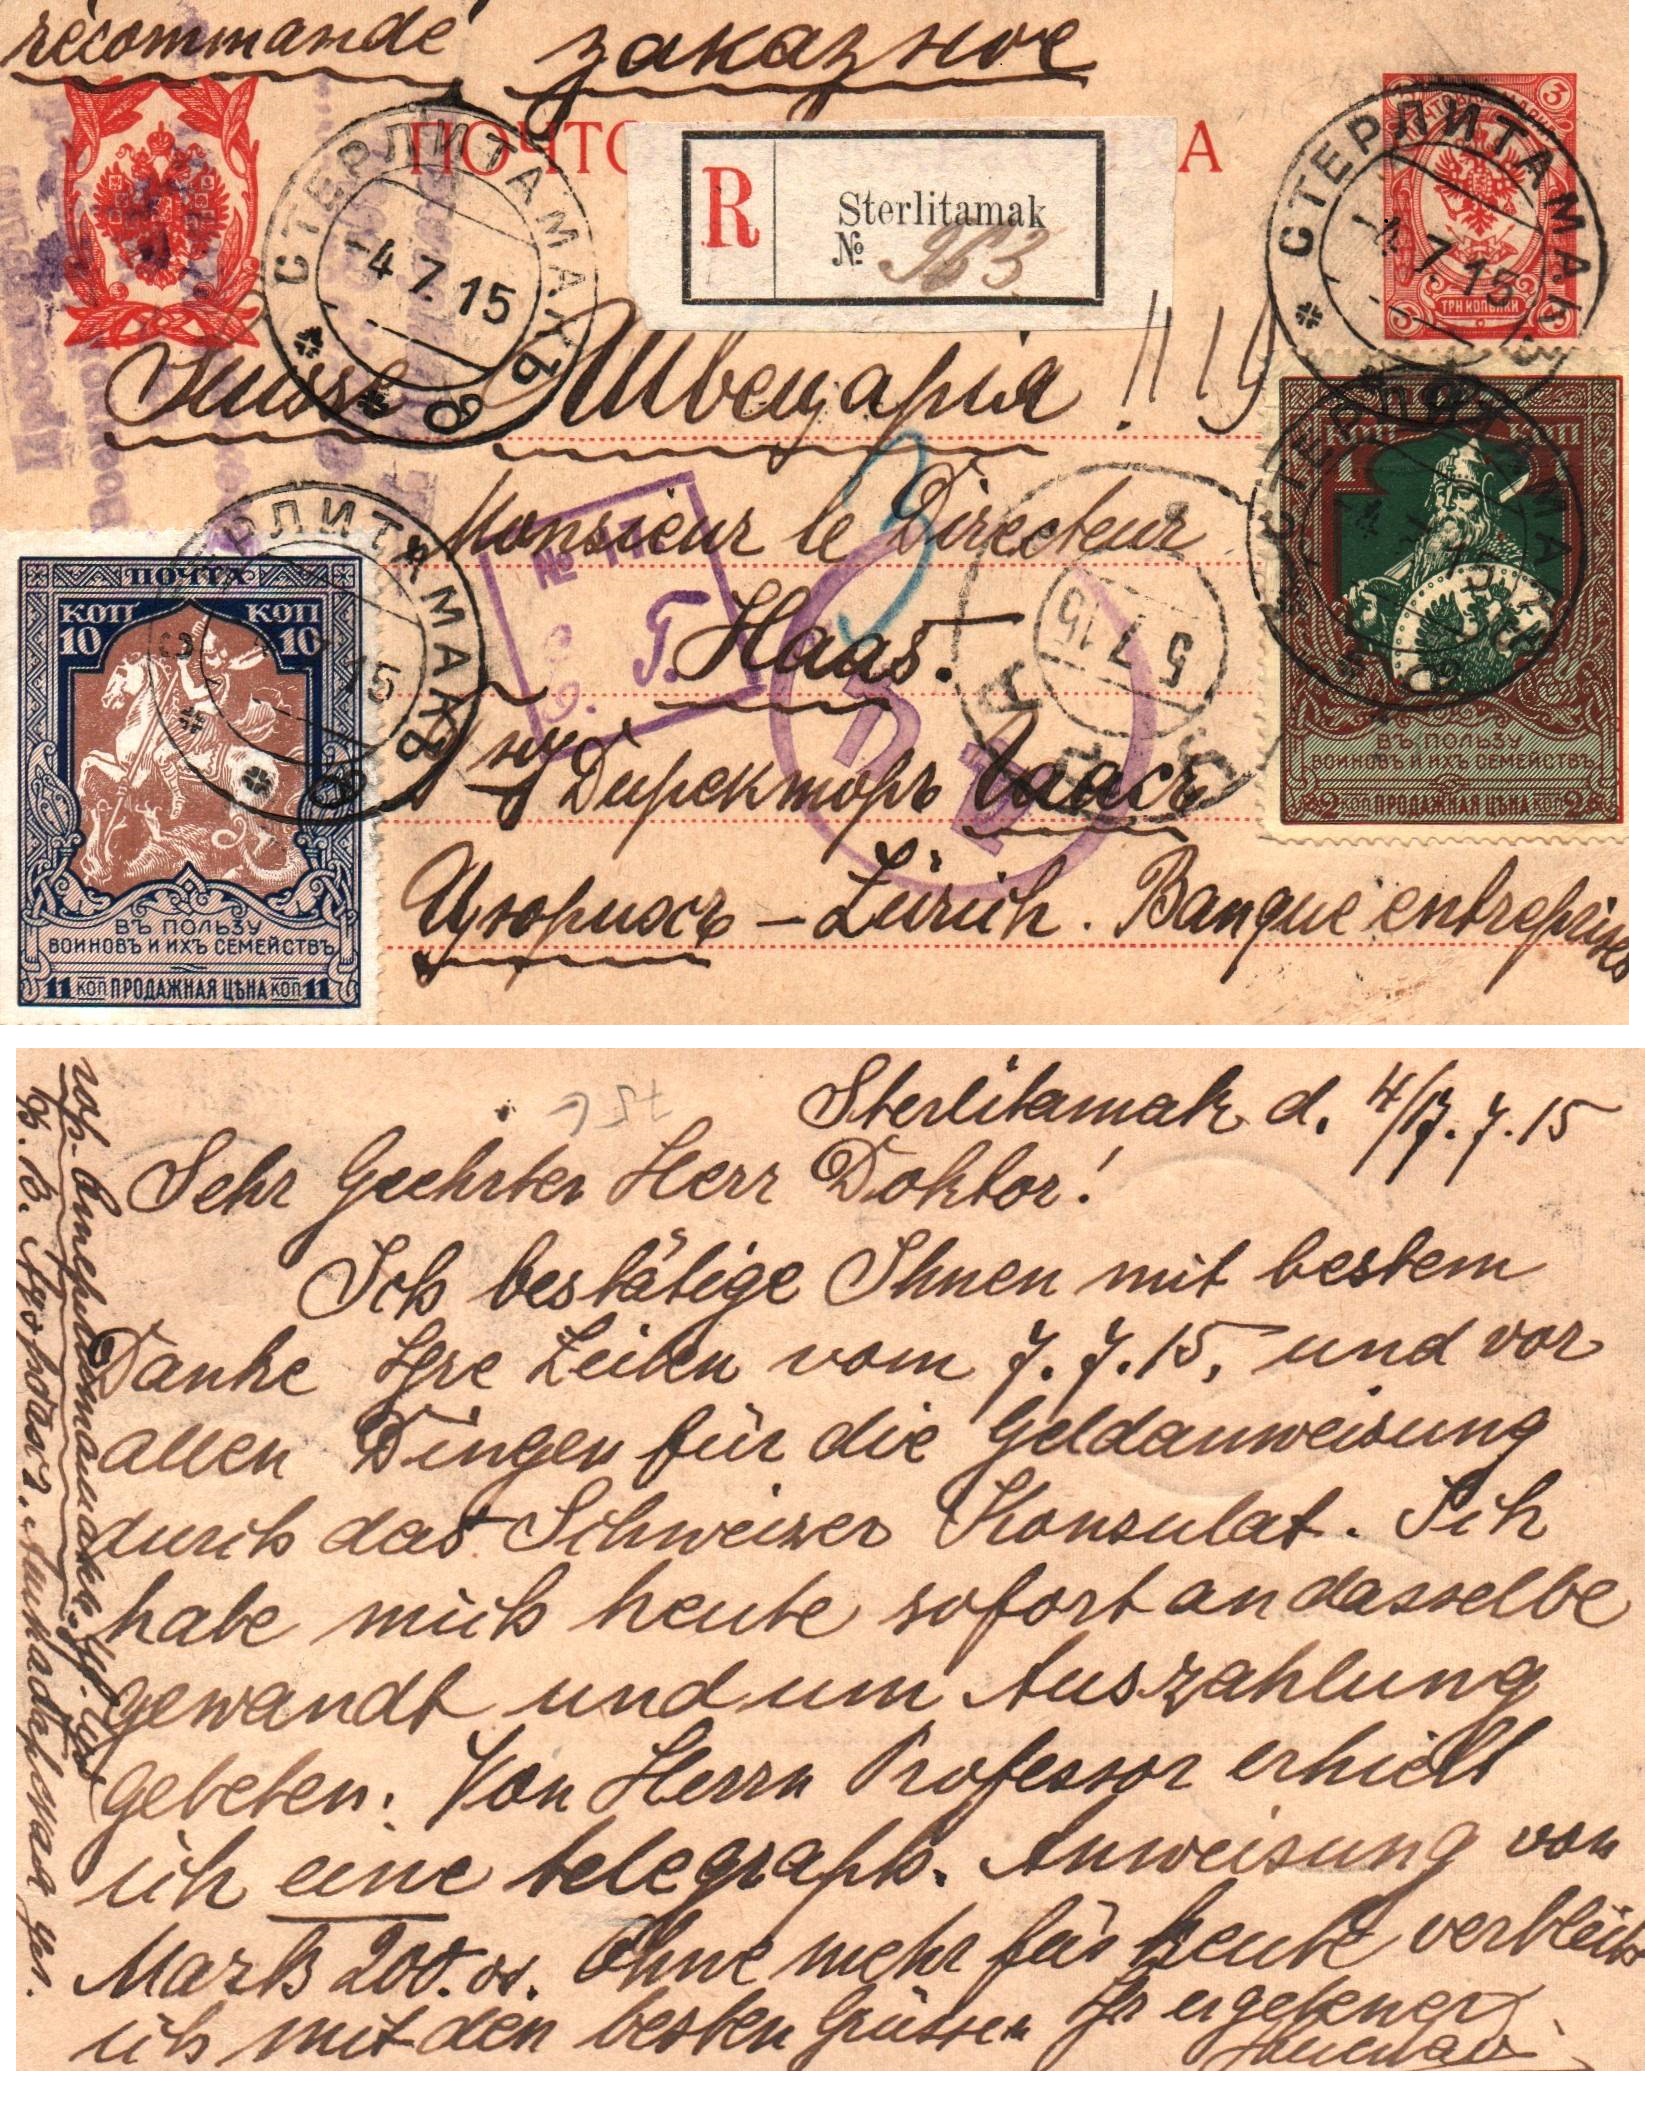 recommandé заказное
ПОЧТО А
R Sterlitamak
№ 963
СТЕРЛИТАМАКЪ
-4.7.15
8
СТЕРЛИТАМАКЪ
-4.7.15
ТРИ КОПѢЙКИ
3 3
Suisse Швецарія !!!
Monsieur le Directeur
Haas.
Директоръ Гаасъ
Цюрихъ – Zürich. Banque entreprises
3
5 7 15
СТЕРЛИТАМАКЪ
15
8
ПОЧТА
КОП КОП
10 10
ВЪ ПОЛЬЗУ
ВОИНОВЪ И ИХЪ СЕМЕЙСТВЪ
11 КОП ПРОДАЖНАЯ ЦѢНА КОП 11
СТЕРЛИТАМАКЪ
15
8
КОП КОП
1
ВЪ ПОЛЬЗУ
ВОИНОВЪ И ИХЪ СЕМЕЙСТВЪ
2 КОП ПРОДАЖНАЯ ЦѢНА КОП 2
Sterlitamak d. 4/17.7.15
Sehr Geehrter Herr Doktor!
Ich bestätige Ihnen mit bestem
Danke Ihre Zeilen vom 7.7.15, und vor
allen Dingen für die Geldanweisung
durch das Schweizer Konsulat. Ich
habe mich heute sofort an dasselbe
gewandt und um Auszahlung
gebeten. Von Herrn Professor erhielt
ich eine telegraph. Anweisung von
Mark 200.00. Ohne mehr für heute verbleibe
ich mit den besten Grüssen Ihr ergebener